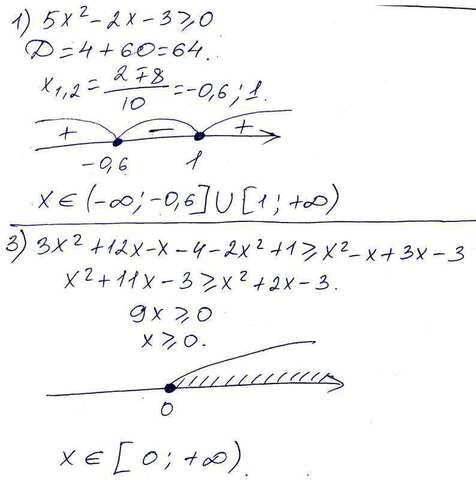 1) 5x² - 2x - 3 ≥ 0
D = 4 + 60 = 64.
x₁,₂ = (2 ∓ 8)/10 = -0,6; 1.
+ - +
-0,6 1
x ∈ (-∞; -0,6] ∪ [1; +∞)
3) 3x² + 12x - x - 4 - 2x² + 1 ≥ x² - x + 3x - 3
x² + 11x - 3 ≥ x² + 2x - 3.
9x ≥ 0
x ≥ 0.
0
x ∈ [0; +∞).